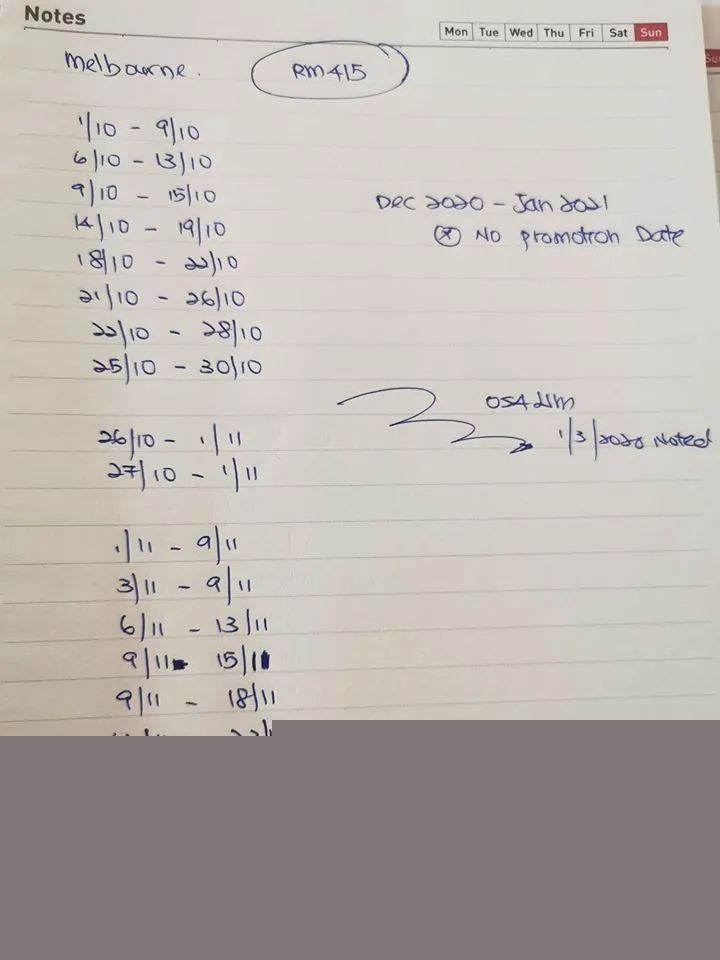 Notes
Mon Tue Wed Thu Fri Sat Sun
Melbourne.
RM415
1/10 - 9/10
6/10 - 13/10
9/10 - 15/10
14/10 - 19/10
18/10 - 22/10
21/10 - 26/10
22/10 - 28/10
25/10 - 30/10
Dec 2020 - Jan 2021
* No promotion Date
26/10 - 1/11
27/10 - 1/11
1/3/2020 Noted
1/11 - 9/11
3/11 - 9/11
6/11 - 13/11
9/11 - 15/11
9/11 - 18/11